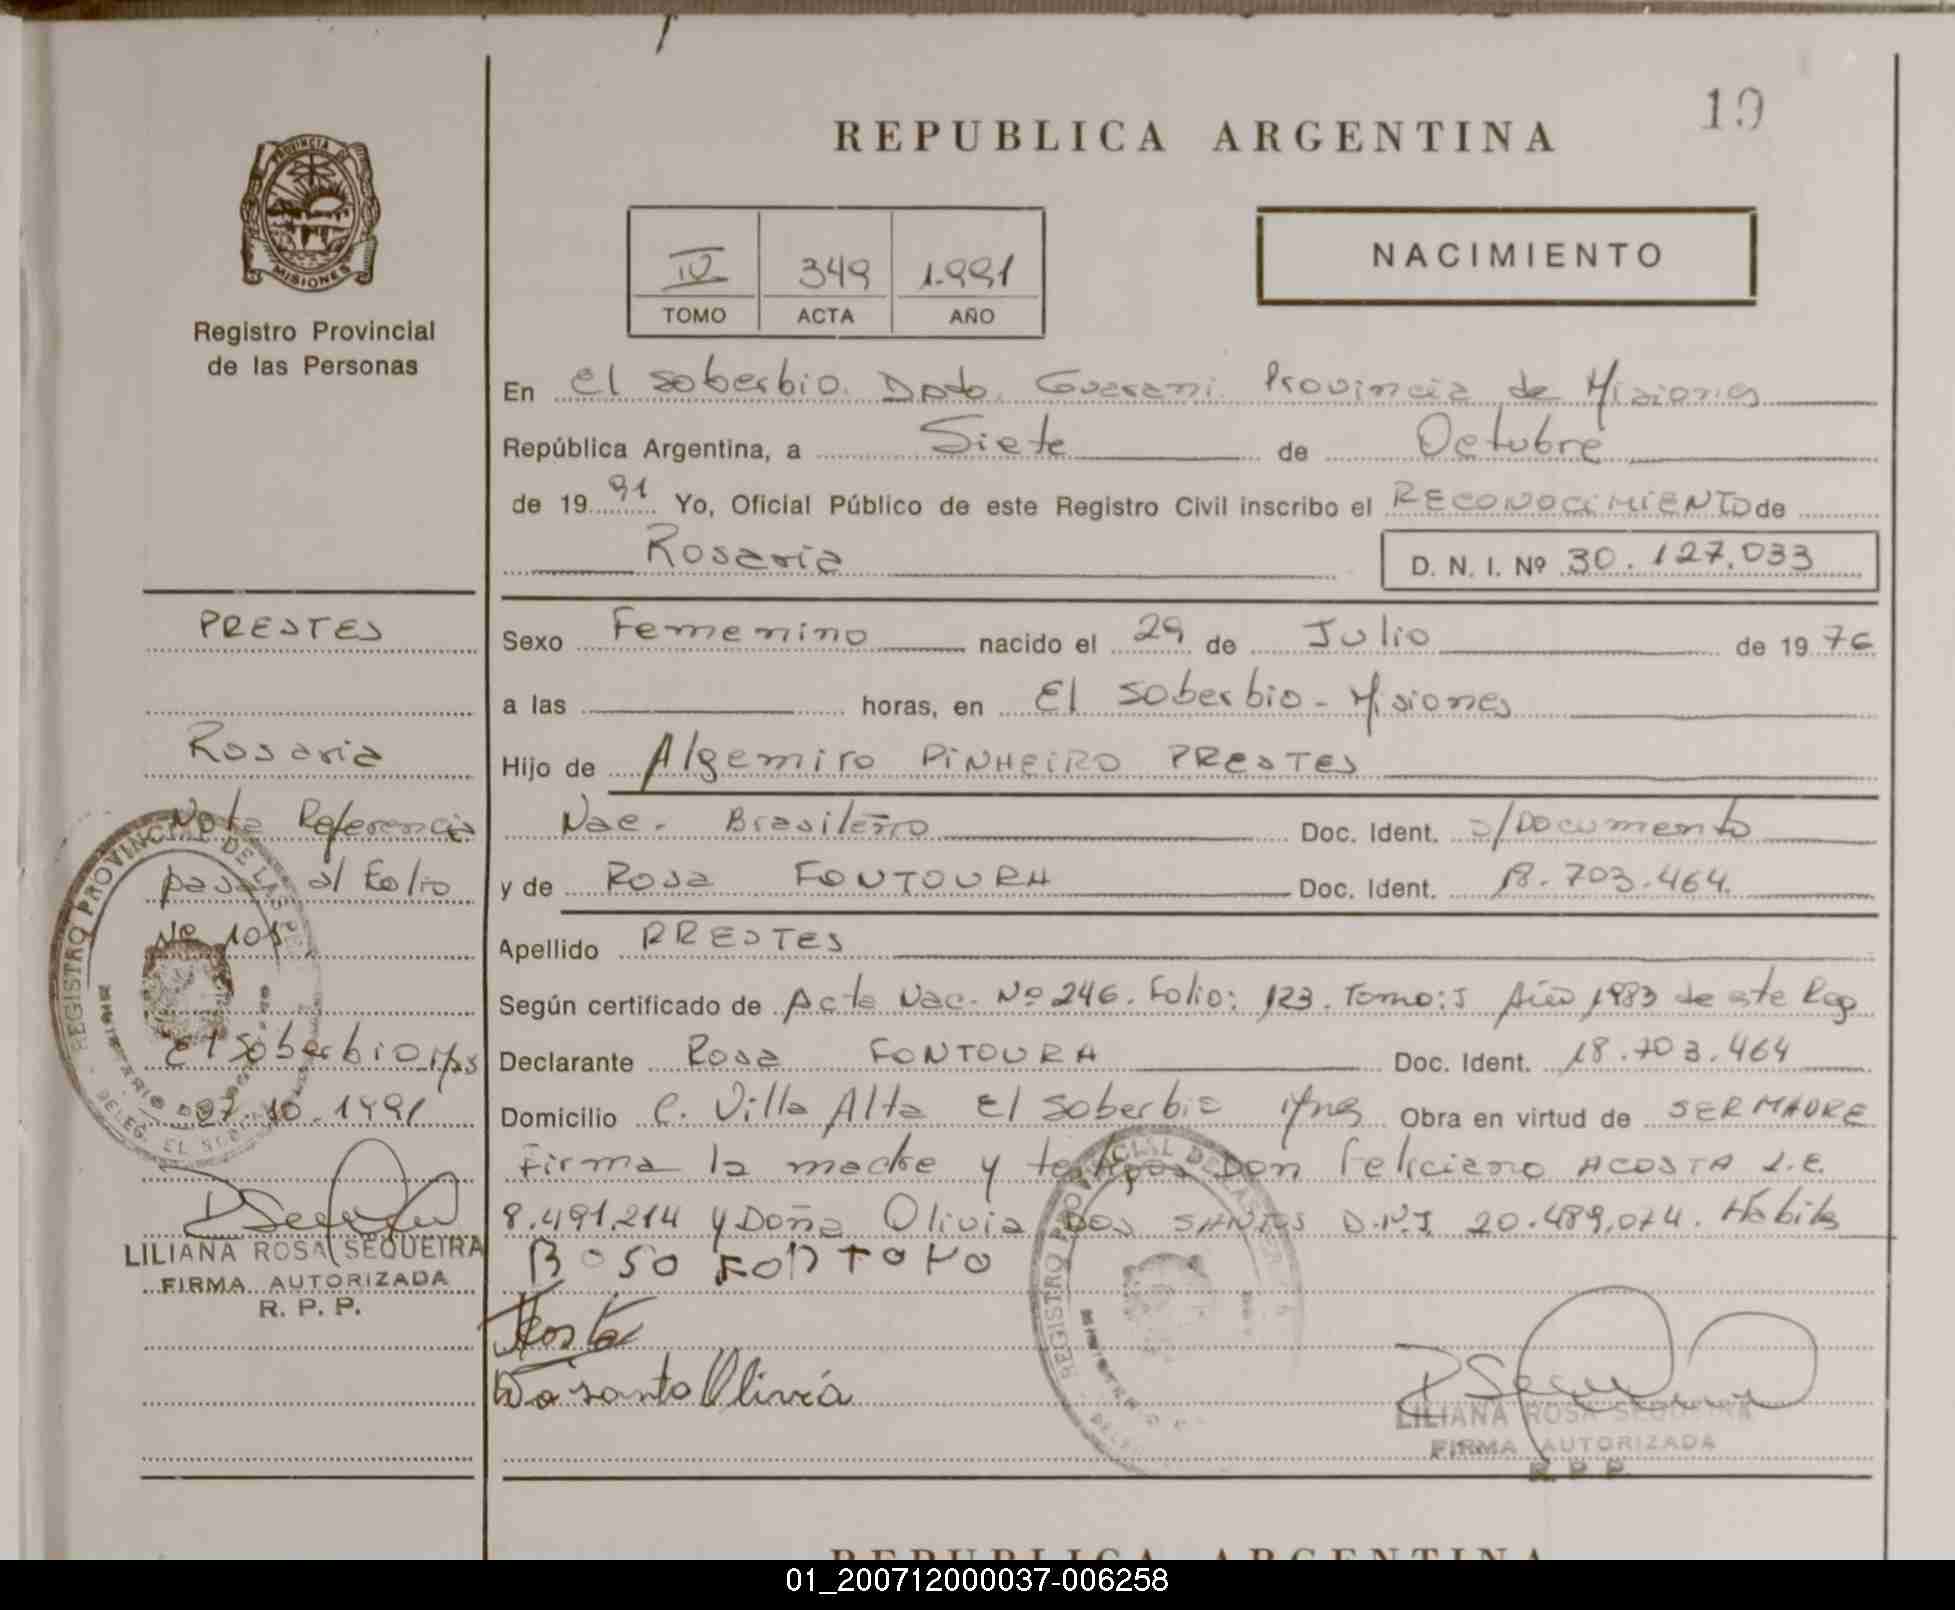 19
REPUBLICA ARGENTINA
PROVINCIA DE
MISIONES
Registro Provincial
de las Personas
IV 349 1.991
TOMO ACTA AÑO
NACIMIENTO
En El Soberbio. Dpto. Guarani. Provincia de Misiones
República Argentina, a Siete de Octubre
de 19 91 Yo, Oficial Público de este Registro Civil inscribo el RECONOCIMIENTO de
Rosaria D. N. I. Nº 30.127.033
PRESTES
Rosaria
Nota Referencia
pasa al Folio
Nº 101
El Soberbio Mns
07.10.1991
LILIANA ROSA SEQUEIRA
FIRMA AUTORIZADA
R. P. P.
Sexo Femenino nacido el 29 de Julio de 19 76
a las horas, en El Soberbio - Misiones
Hijo de Algemiro PINHEIRO PRESTES
Nac. Brasileño Doc. Ident. s/Documento
y de Rosa FONTOURA Doc. Ident. 18.703.464
Apellido PRESTES
Según certificado de Acta Nac. Nº 246. Folio: 123. Tomo: I Año 1983 de este Reg
Declarante Rosa FONTOURA Doc. Ident. 18.703.464
Domicilio C. Villa Alta El Soberbio Mns Obra en virtud de SER MADRE
Firma la madre y testigos Don Feliciano ACOSTA L.E.
8.491.214 y Doña Olivia DOS SANTOS D.N.I. 20.489.074. Habils
BOSO FONTORO
Acosta
Do santo Olivia
LILIANA ROSA SEQUEIRA
FIRMA AUTORIZADA
R. P. P.
REPUBLICA ARGENTINA
01_200712000037-006258